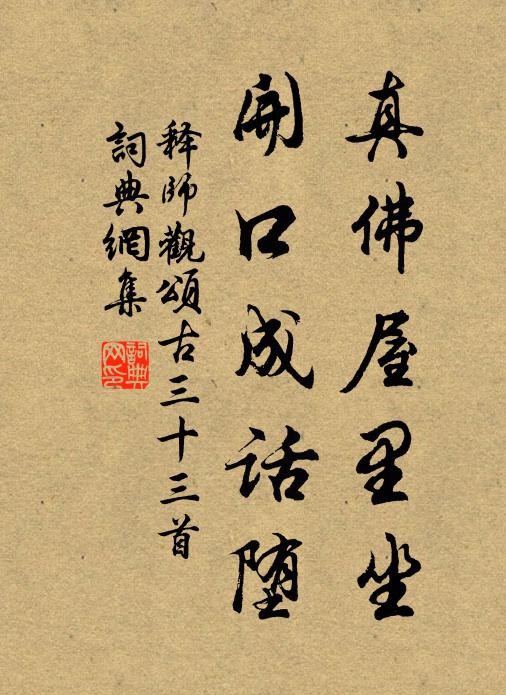 真佛屋里坐
開口成話堕
释師觀頌古三十三首
詞典網集
詞典網印